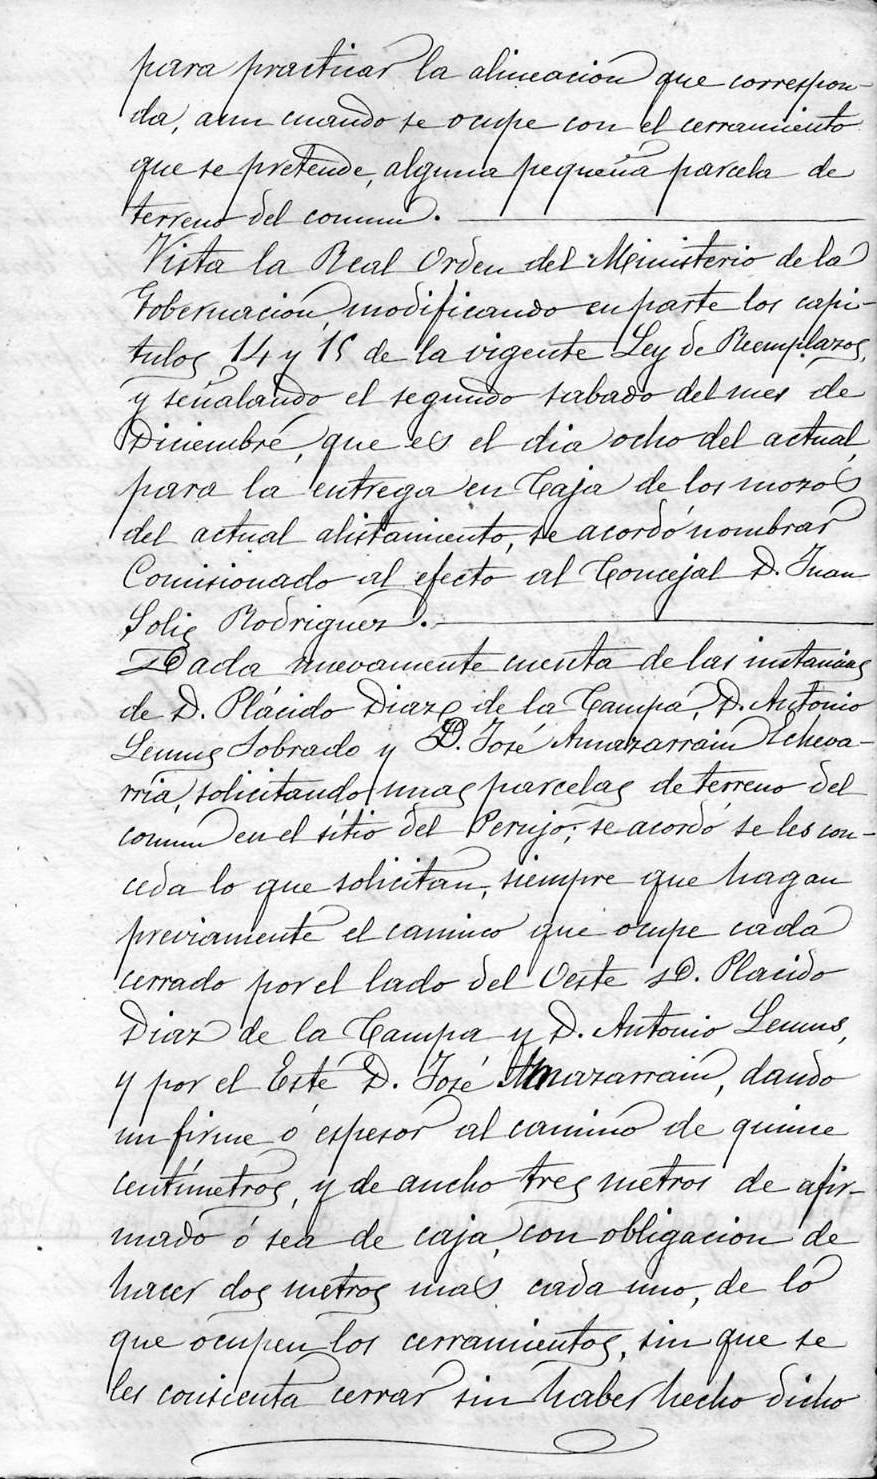 para practicar la alineacion que correspon-
da, aun cuando se ocupe con el cerramiento
que se pretende, alguna pequeña parcela de
terreno del comun.
Vista la Real Orden del Ministerio de la
Gobernacion, modificando en parte los capi-
tulos, 14 y 15 de la vigente Ley de Reemplazos,
y señalando el segundo sabado del mes de
Diciembre, que es el dia ocho del actual,
para la entrega en Caja de los mozos
del actual alistamiento, se acordó nombrar
Comisionado al efecto al Concejal D. Juan
Solis Rodriguez.
Dada nuevamente cuenta de las instancias
de D. Plácido Diaz de la Campa, D. Antonio
Lemus Sobrado y D. José Amazarrain Echeva-
rria, solicitando unas parcelas de terreno del
comun en el sitio del Perujo; se acordó se les con-
ceda lo que solicitan, siempre que hagan
previamente el camino que ocupe cada
cerrado por el lado del Oeste D. Placido
Diaz de la Campa y D. Antonio Lemus,
y por el Este D. José Amazarrain, dando
un firme ó espesor al camino de quince
centímetros, y de ancho tres metros de afir-
mado ó sea de caja, con obligacion de
hacer dos metros mas cada uno, de lo
que ocupen los cerramientos, sin que se
les consienta cerrar sin haber hecho dicho